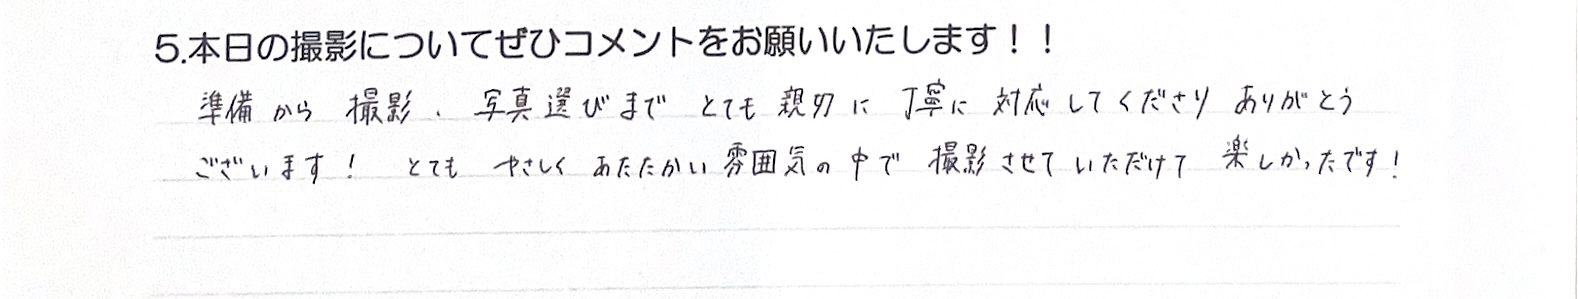 5.本日の撮影についてぜひコメントをお願いいたします！！
準備から 撮影、写真選びまで とても 親切に 丁寧に 対応してくださり ありがとう
ございます！ とても やさしく あたたかい 雰囲気の中で 撮影させていただけて 楽しかったです！